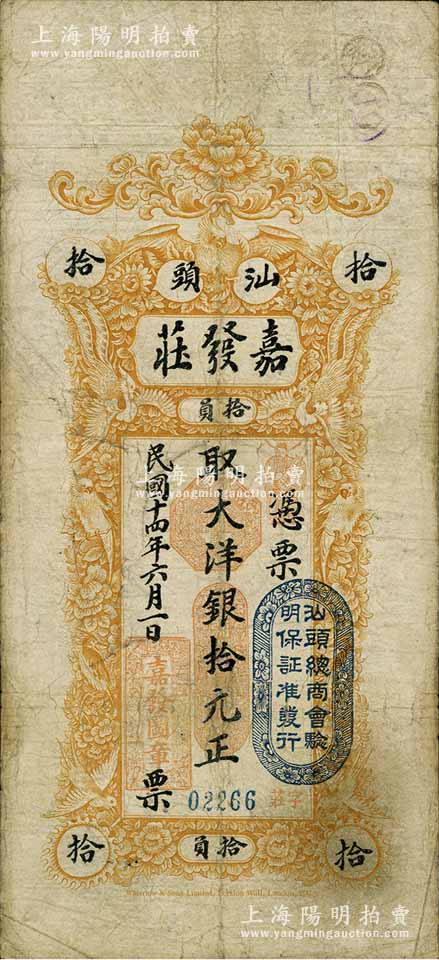 上海陽明拍賣
www.yangmingauction.com
拾
拾
汕頭
嘉發莊
拾員
憑票
取大洋銀拾元正
民國十四年六月一日
票
汕頭總商會驗
明保証准發行
嘉發圖章
02266
字
莊
拾員
拾
拾
Waterlow & Sons Limited, London Wall, London, E.C.
上海陽明拍賣
www.yangmingauction.com
上海陽明拍賣
www.yangmingauction.com